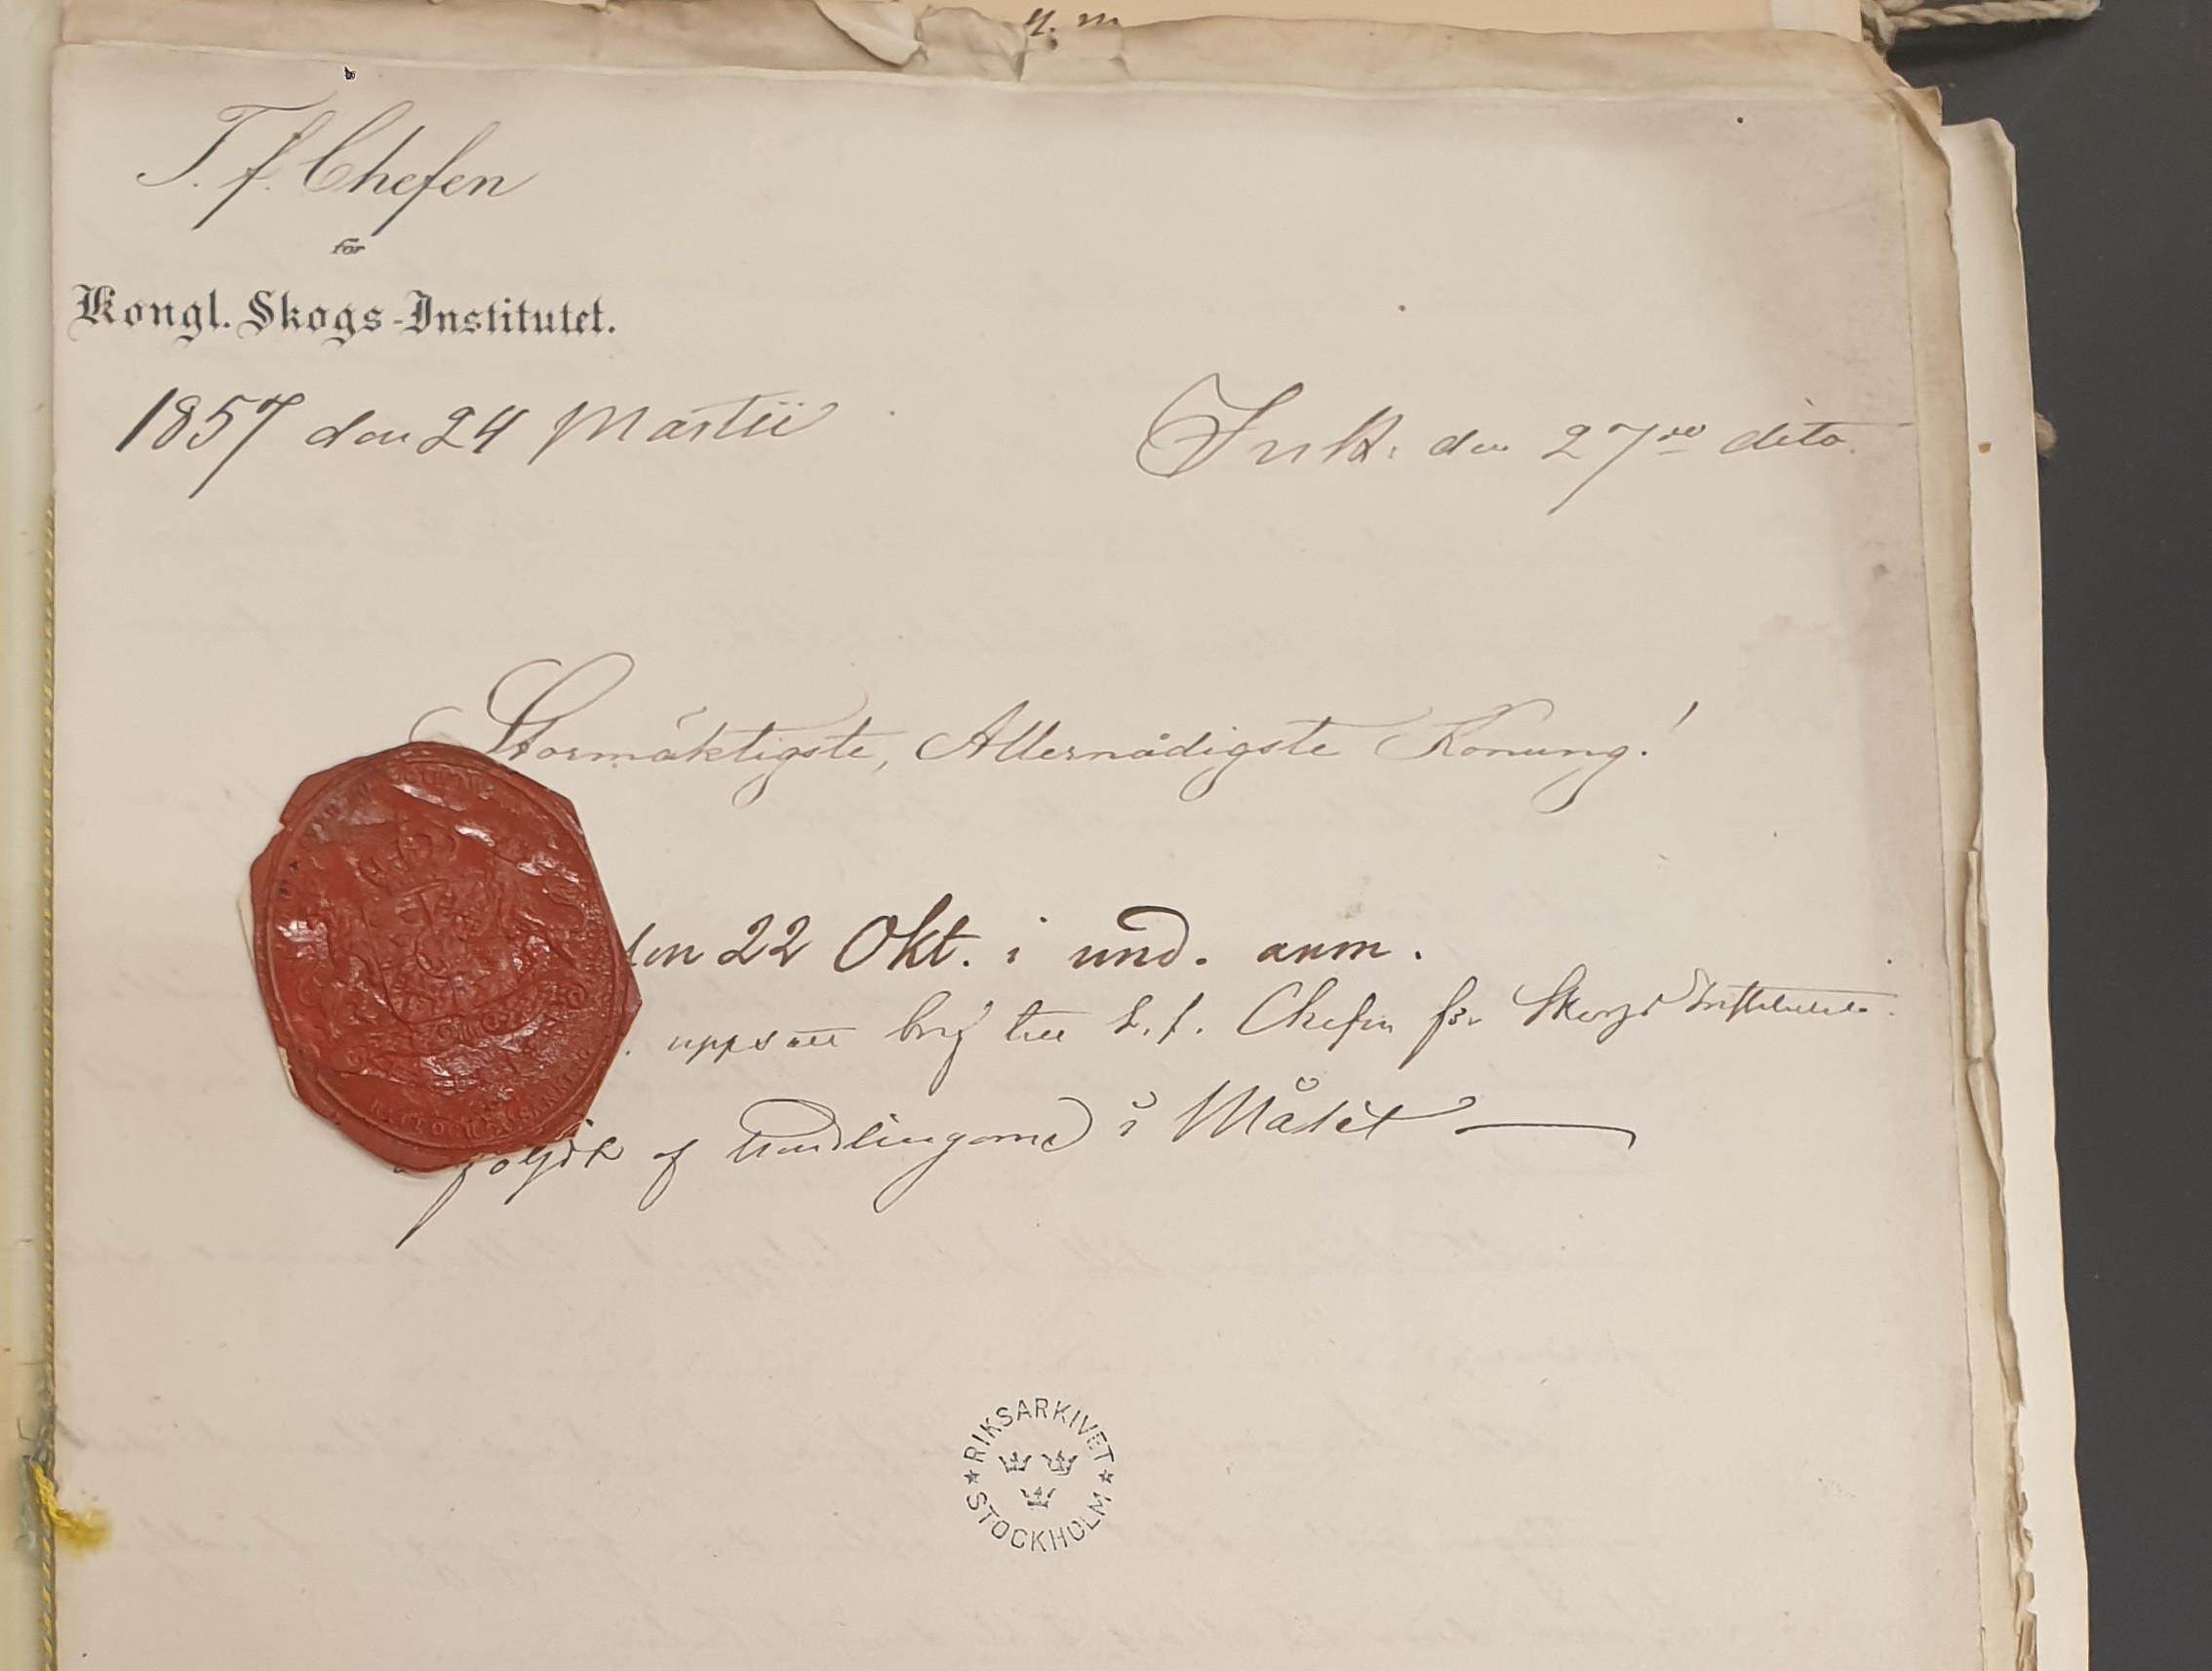 T. f. Chefen
för
Kongl. Skogs-Institutet.
1857 den 24 Martii
Ink. den 27de dito.
Stormäktigste, Allernådigste Konung!
den 22 Okt. i und. anm.
uppsatt bref till t. f. Chefen för Skogs Institutet
följdt af handlingarne i Målet
RIKSARKIVET
STOCKHOLM